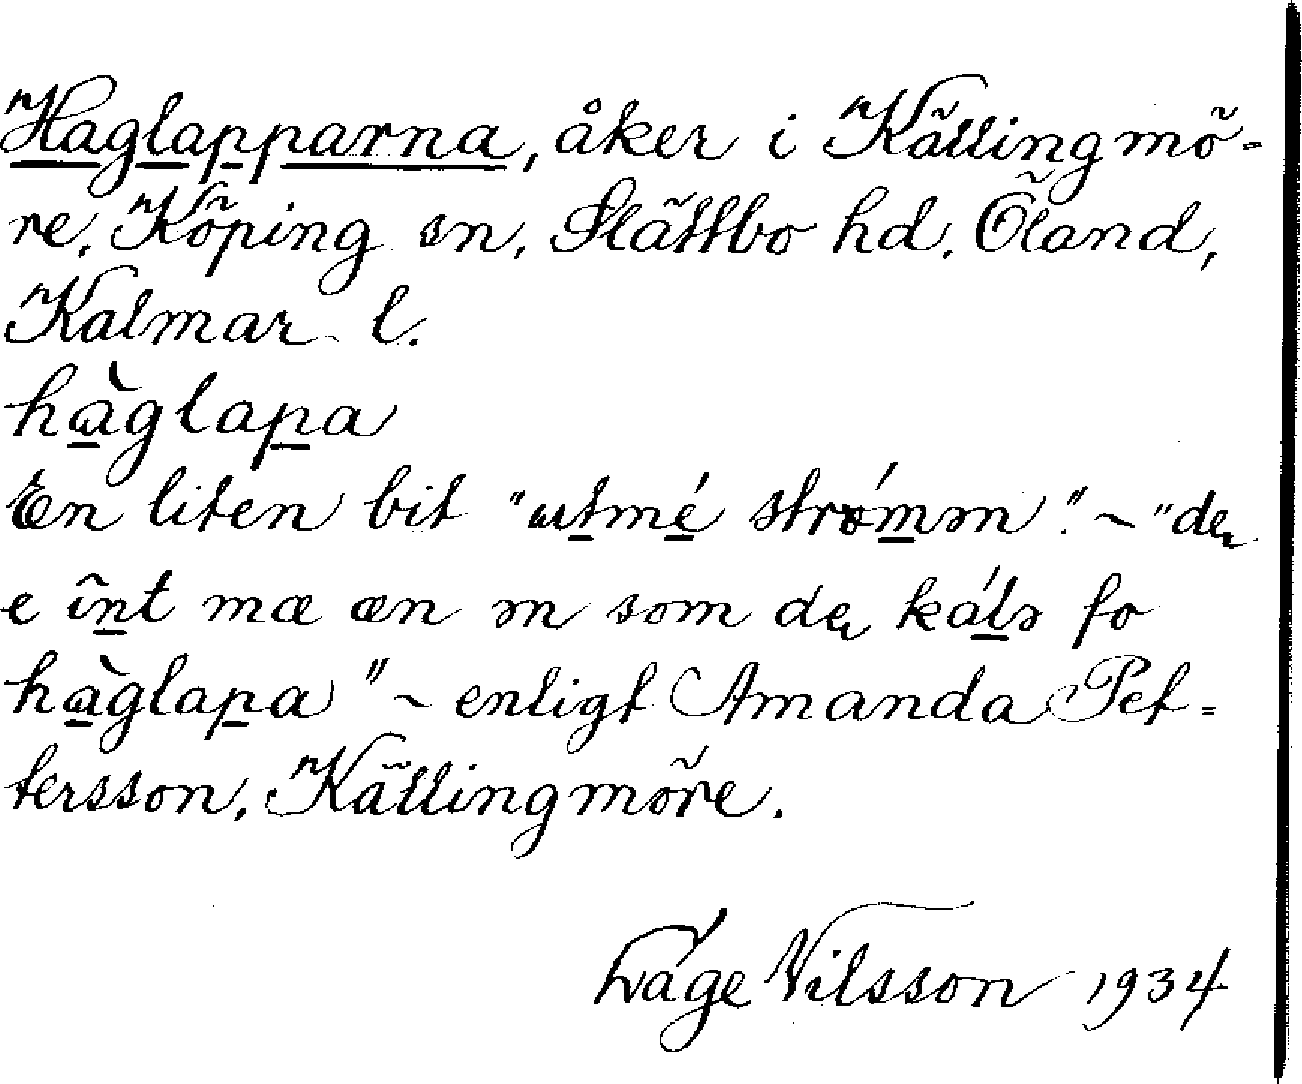 Haglapparna, åker i Källingmö-
re, Köping sn, Slättbo hd. Öland,
Kalmar l.
hàglapa
En liten bit "utmé strømm". ~ "de
e int mæ æn m som de kálɘ fo
hàglapa" ~ enligt Amanda Pet-
tersson, Källingmöre.
Tåge Nilsson 1934